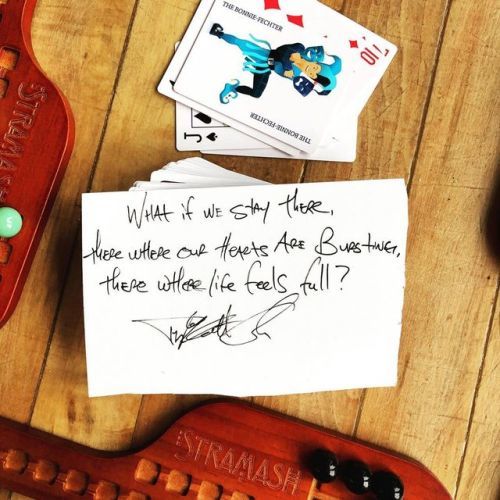 THE BONNIE-FECHTER
10
THE BONNIE-FECHTER
J
STRAMASH
WHAT if WE StAY THERE,
tHERE WHERE OUR HEARTS ARE BURSTING,
tHERE WHERE life feels full?
STRAMASH